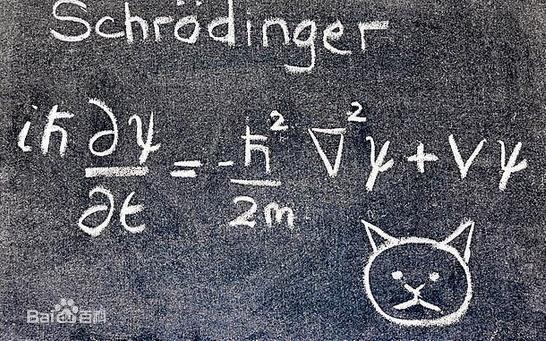 Schrödinger
iħ ∂ψ/∂t = -ħ²/2m ∇²ψ + Vψ
Bai百科